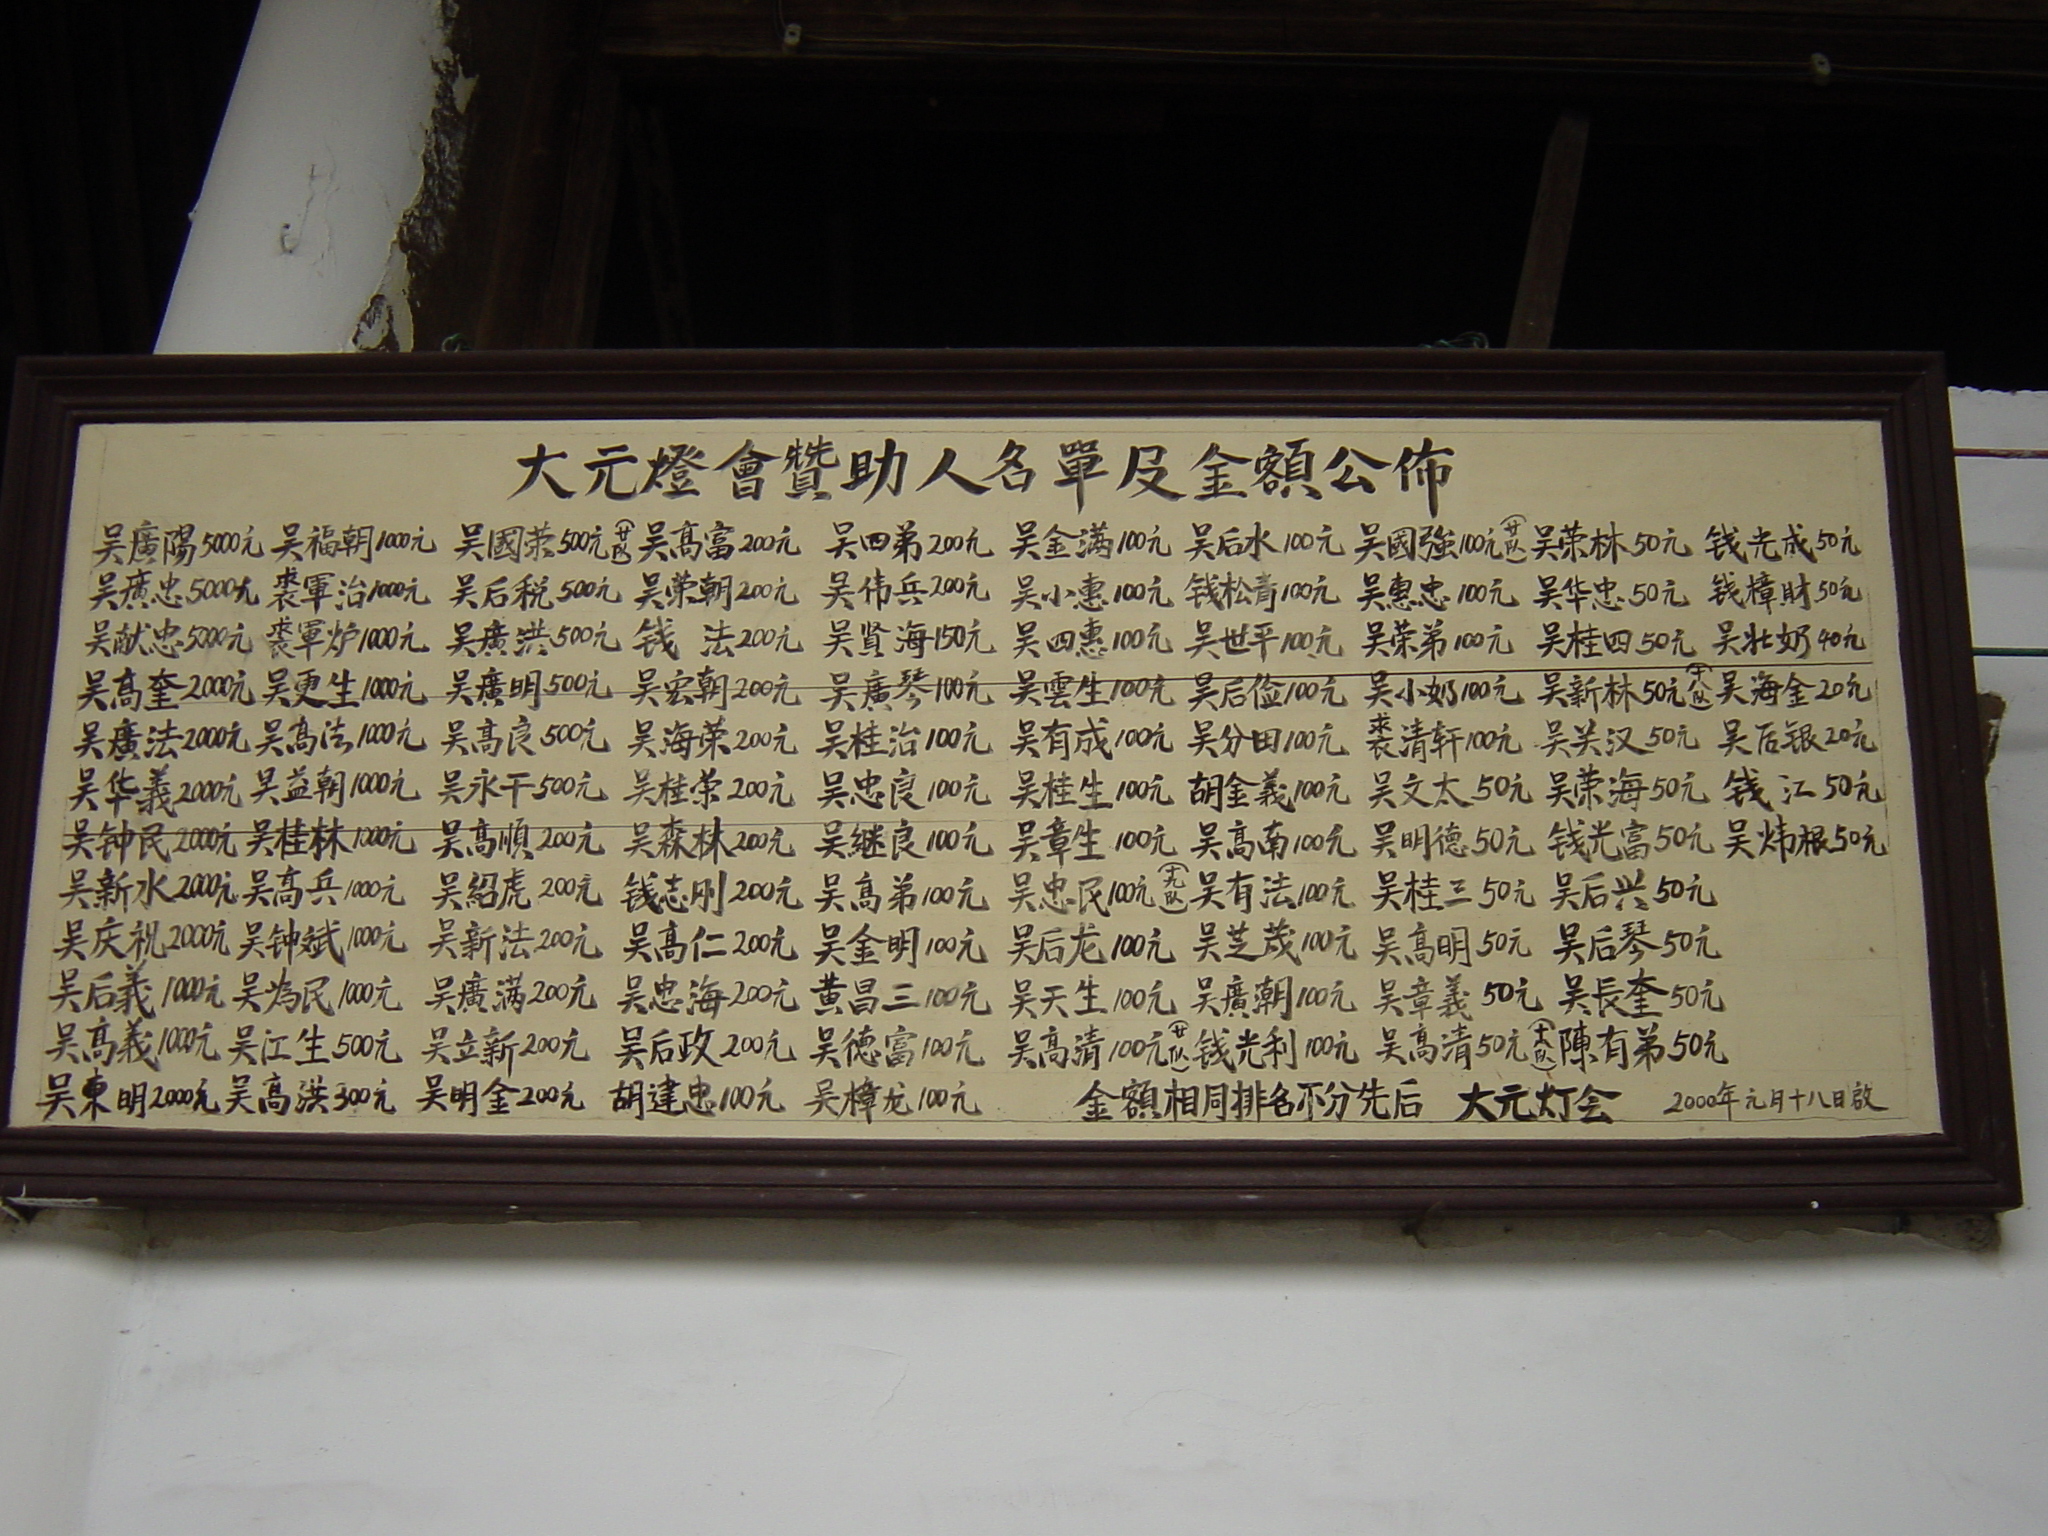 大元燈會贊助人名單及金額公佈
吴廣陽5000元 吴福朝1000元 吴國荣500元(廿队) 吴高富200元 吴四弟200元 吴金满100元 吴后水100元 吴國強100元(廿一队) 吴荣林50元 钱光成50元
吴廣忠5000元 裘軍治1000元 吴后税500元 吴荣朝200元 吴伟兵200元 吴小惠100元 钱松青100元 吴惠忠100元 吴华忠50元 钱樟財50元
吴献忠5000元 裘軍炉1000元 吴廣洪500元 钱 法200元 吴賢海150元 吴四惠100元 吴世平100元 吴荣弟100元 吴桂四50元 吴壯奶40元
吴高奎2000元 吴更生1000元 吴廣明500元 吴宏朝200元 吴廣琴100元 吴雲生100元 吴后俭100元 吴小奶100元 吴新林50元(十八队) 吴海金20元
吴廣法2000元 吴高法1000元 吴高良500元 吴海荣200元 吴桂治100元 吴有成100元 吴分田100元 裘清轩100元 吴关汉50元 吴后银20元
吴华義2000元 吴益朝1000元 吴永干500元 吴桂荣200元 吴忠良100元 吴桂生100元 胡金義100元 吴文太50元 吴荣海50元 钱 江50元
吴钟民2000元 吴桂林1000元 吴高順200元 吴森林200元 吴継良100元 吴章生100元 吴高南100元 吴明德50元 钱光富50元 吴炜根50元
吴新水2000元 吴高兵1000元 吴紹虎200元 钱志刚200元 吴高弟100元 吴忠民100元(十九队) 吴有法100元 吴桂三50元 吴后兴50元
吴庆祝2000元 吴钟斌1000元 吴新法200元 吴高仁200元 吴金明100元 吴后龙100元 吴芝茂100元 吴高明50元 吴后琴50元
吴后義1000元 吴為民1000元 吴廣满200元 吴忠海200元 黄昌三100元 吴天生100元 吴廣潮100元 吴章義50元 吴長奎50元
吴高義1000元 吴江生500元 吴立新200元 吴后政200元 吴德富100元 吴高清100元(廿一队) 钱光利100元 吴高清50元(十八队) 陳有弟50元
吴東明2000元 吴高洪300元 吴明金200元 胡建忠100元 吴樟龙100元 金額相同排名不分先后 大元灯会 2000年元月十八日啟